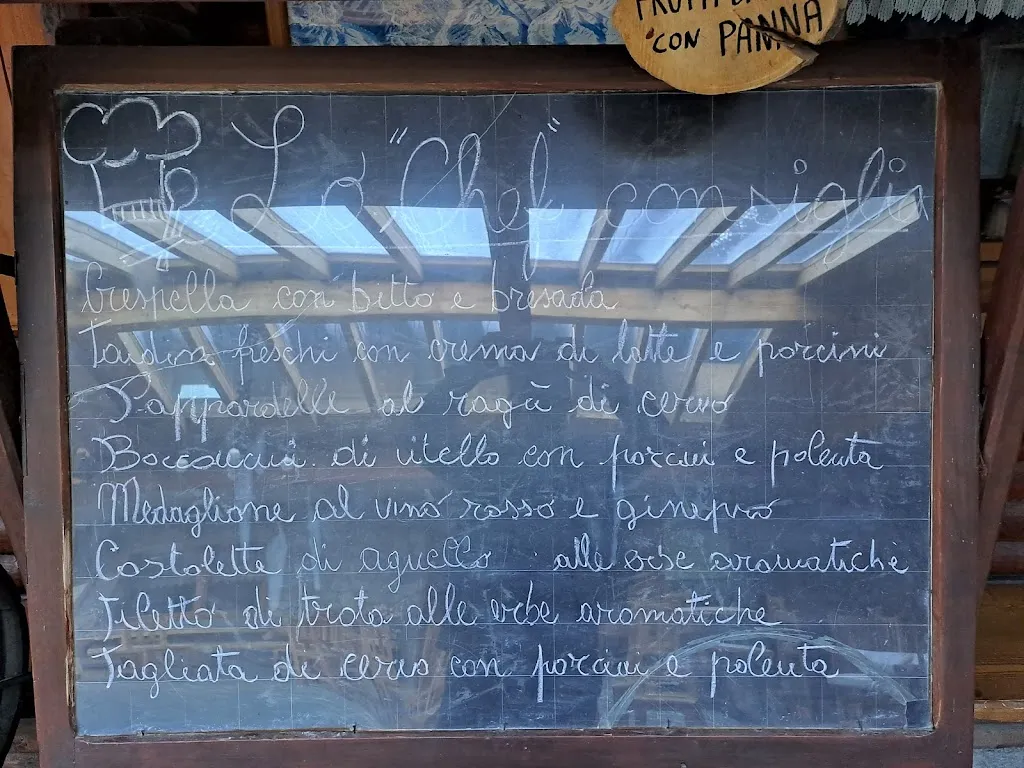 FRUTTI DI
CON PANNA
Lo "Chef" consiglia
Crespella con Bitto e bresada
freschi con crema di latte e porcini
Pappardelle al ragù di cervo
Bocconcini di vitello con porcini e polenta
Medaglione al vino rosso e ginepro
Costolette di agnello alle erbe aromatiche
Filetto di trota alle erbe aromatiche
Tagliata di cervo con porcini e polenta